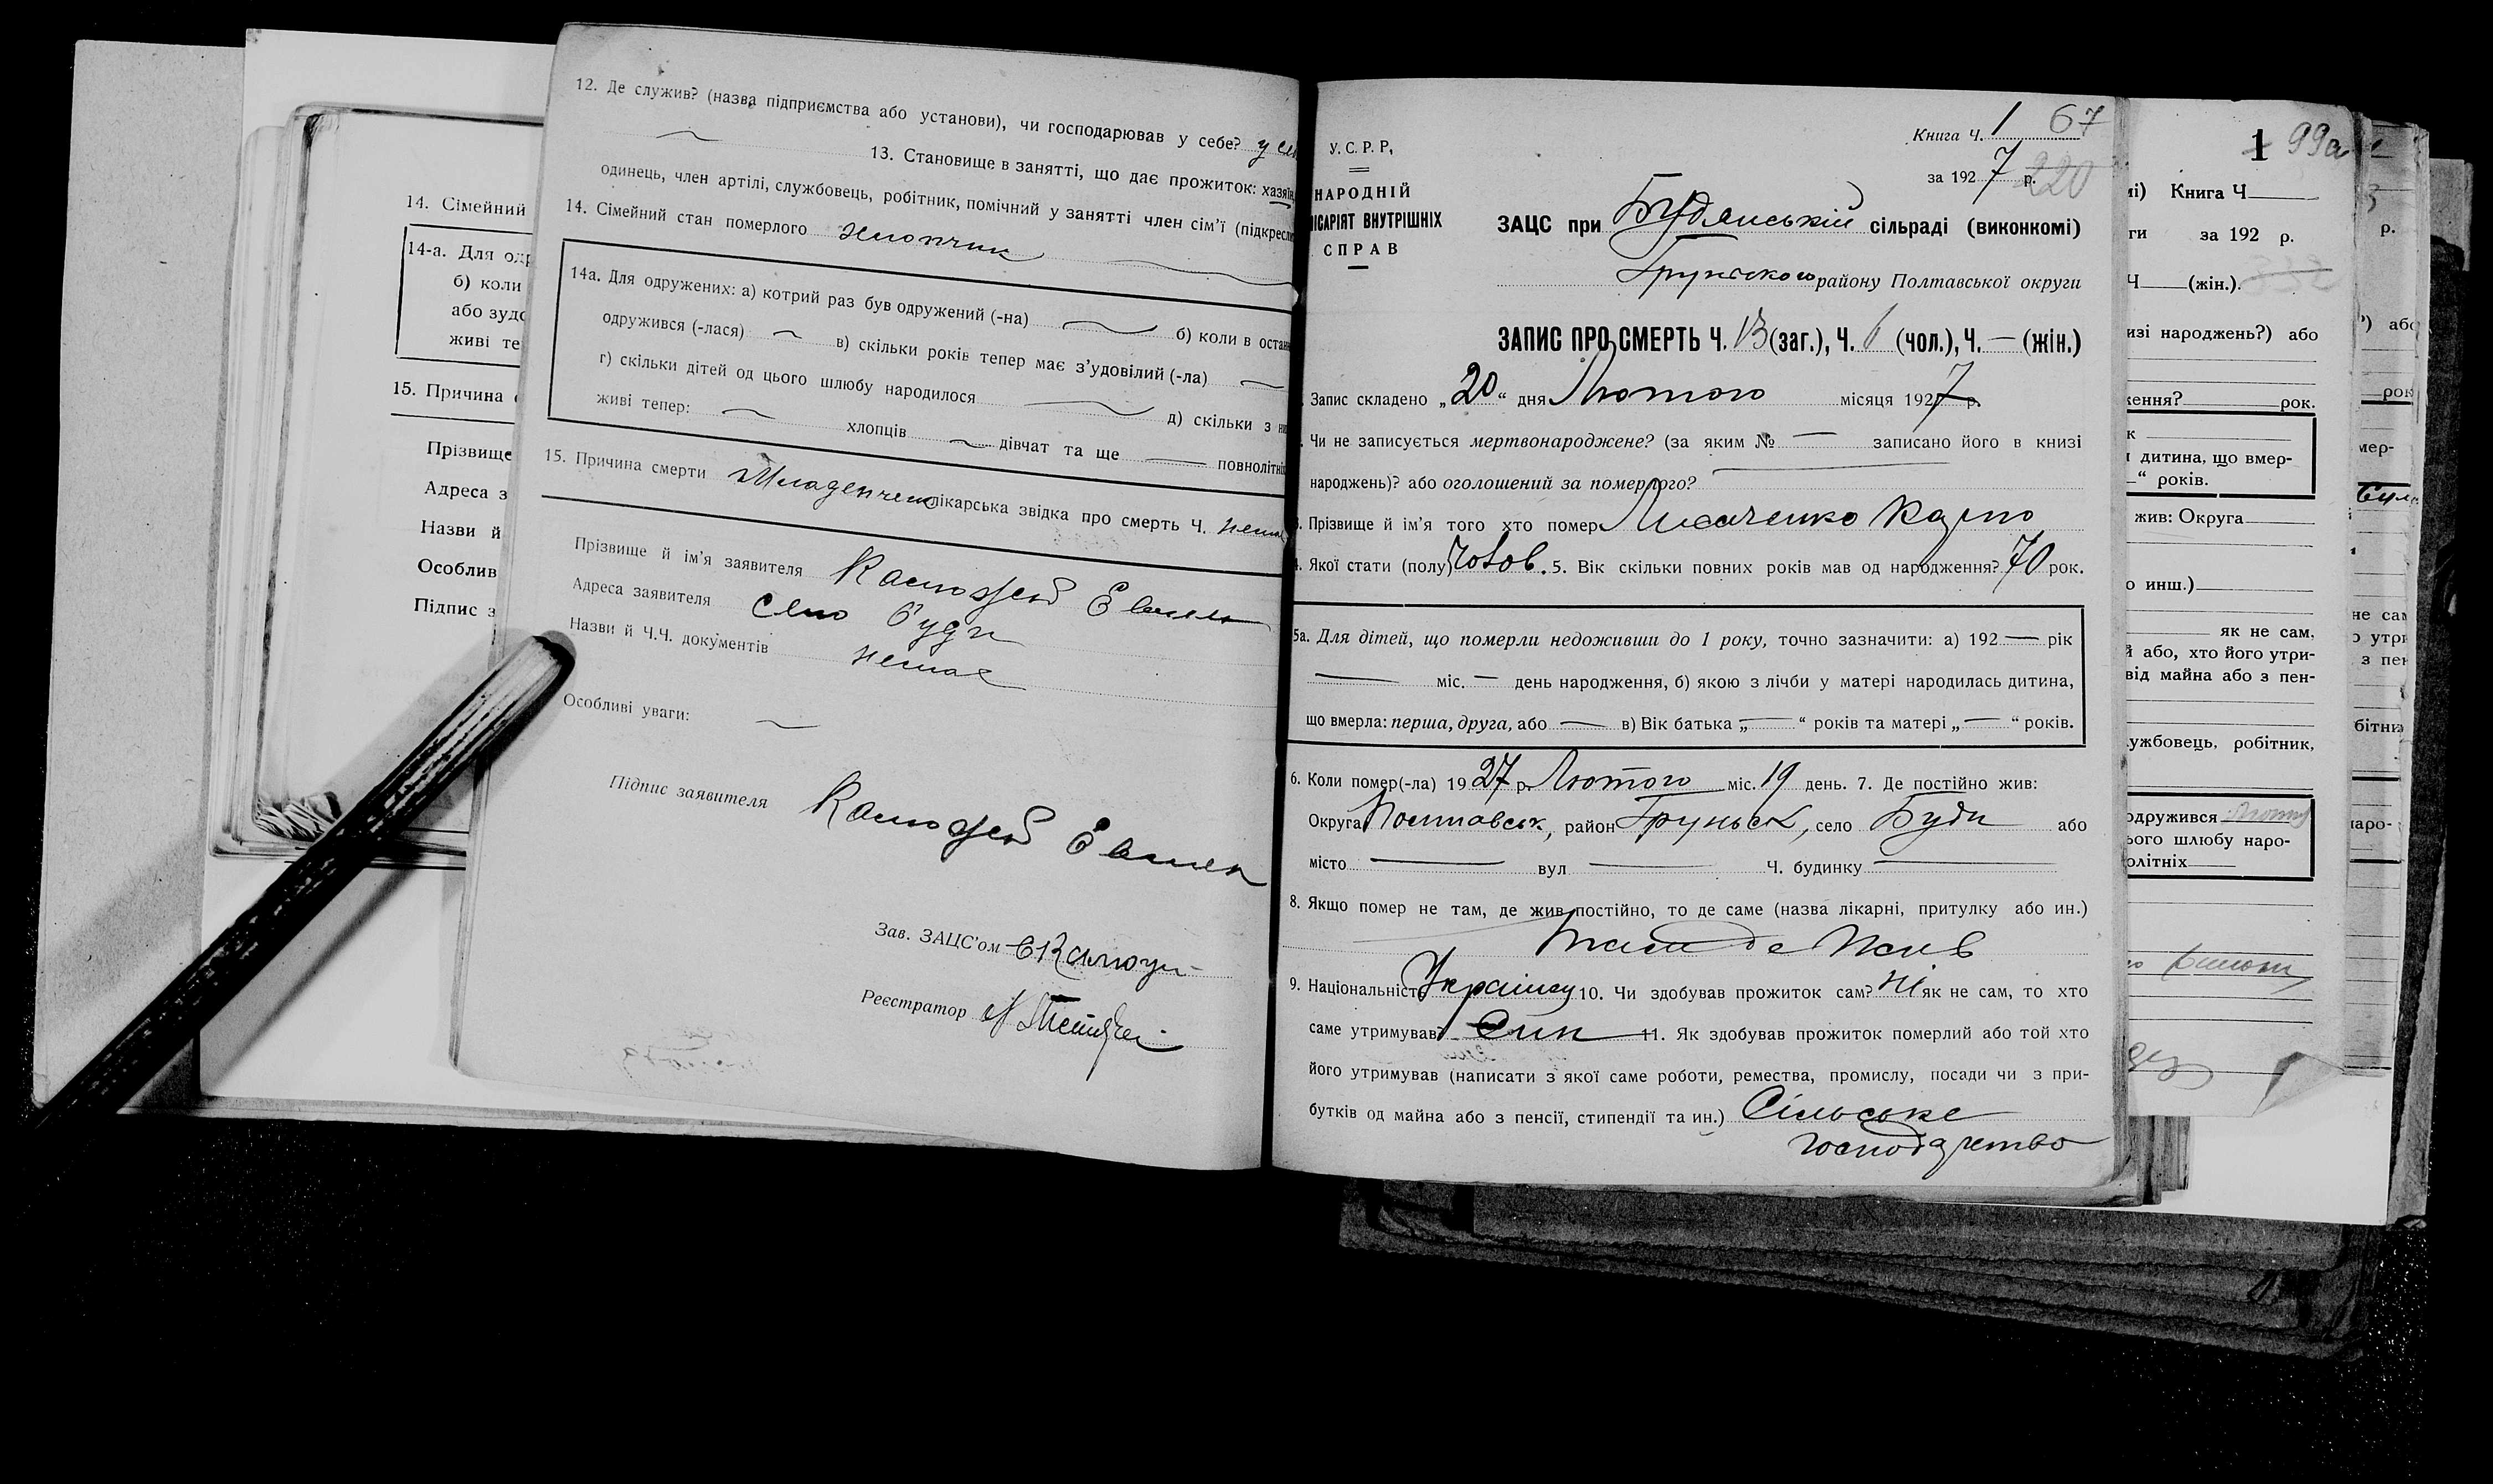 12. Де служив? (назва підприємства або установи), чи господарював у себе?
13. Становище в занятті, що дає прожиток: хазяїн,
одинець, член артілі, службовець, робітник, помічний у занятті член сім'ї (підкресли
14. Сімейний стан померлого хлопчик
14а. Для одружених: а) котрий раз був одружений (-на) б) коли в остан
одружився (-лася) в) скільки років тепер має з'удовілий (-ла)
г) скільки дітей од цього шлюбу народилося д) скільки з ни
живі тепер: хлопців дівчат та ще повнолітні
15. Причина смерти лікарська звідка про смерть Ч. немає
Прізвище й ім'я заявителя
Адреса заявителя село Буди
Назви й Ч.Ч. документів немає
Особливі уваги:
Підпис заявителя
Зав. ЗАЦС'ом
Реєстратор
14. Сімейний
14-а. Для одр
б) коли
або зудо
живі те
15. Причина
Прізвище
Адреса з
Назви й
Особлив
Підпис з
У.С.Р.Р,
НАРОДНІЙ
ІСАРІЯТ ВНУТРІШНІХ
СПРАВ
Книга Ч. 1 67
за 1927 р. 220
ЗАЦС при Будянській сільраді (виконкомі)
Грунського району Полтавської округи
ЗАПИС ПРО СМЕРТЬ Ч. 13 (заг.), Ч. 6 (чол.), Ч. — (жін.)
Запис складено „20“ дня Лютого місяця 1927 р.
Чи не записується мертвонароджене? (за яким № — записано його в книзі
народжень)? або оголошений за померлого?
3. Прізвище й ім'я того хто помер Карпо
4. Якої стати (полу) Чолов. 5. Вік скільки повних років мав од народження? 70 рок.
5а. Для дітей, що померли недоживши до 1 року, точно зазначити: а) 192 — рік
— міс. — день народження, б) якою з лічби у матері народилась дитина,
що вмерла: перша, друга, або — в) Вік батька „—“ років та матері „—“ років.
6. Коли помер(-ла) 1927 р. Лютого міс. 19 день. 7. Де постійно жив:
Округа Полтавськ, район Груньськ, село Буди або
місто — вул — Ч. будинку —
8. Якщо помер не там, де жив постійно, то де саме (назва лікарні, притулку або ин.)
там де жив
9. Національність 10. Чи здобував прожиток сам? Ні як не сам, то хто
саме утримував? Син 11. Як здобував прожиток померлий або той хто
його утримував (написати з якої саме роботи, ремества, промислу, посади чи з при-
бутків од майна або з пенсії, стипендії та ин.) Сільське
господарство
1 99а
мі) Книга Ч
ги за 192 р.
Ч (жін.)
изі народжень?) або
ження? рок.
к
дитина, що вмер-
“ років.
жив: Округа
о инш.)
як не сам,
й або, хто його утри-
від майна або з пен-
ужбовець, робітник,
одружився
ього шлюбу наро-
олітніх
р.
?) або
рок
мер-
не сам
о утри
з пен
бітни
наро-